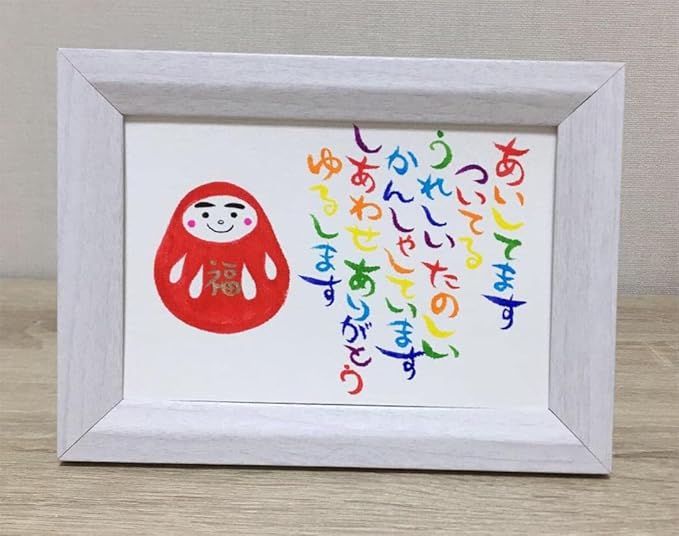 あいしてます
ついてる
うれしいたのしい
かんしゃしています
しあわせありがとう
ゆるします
福